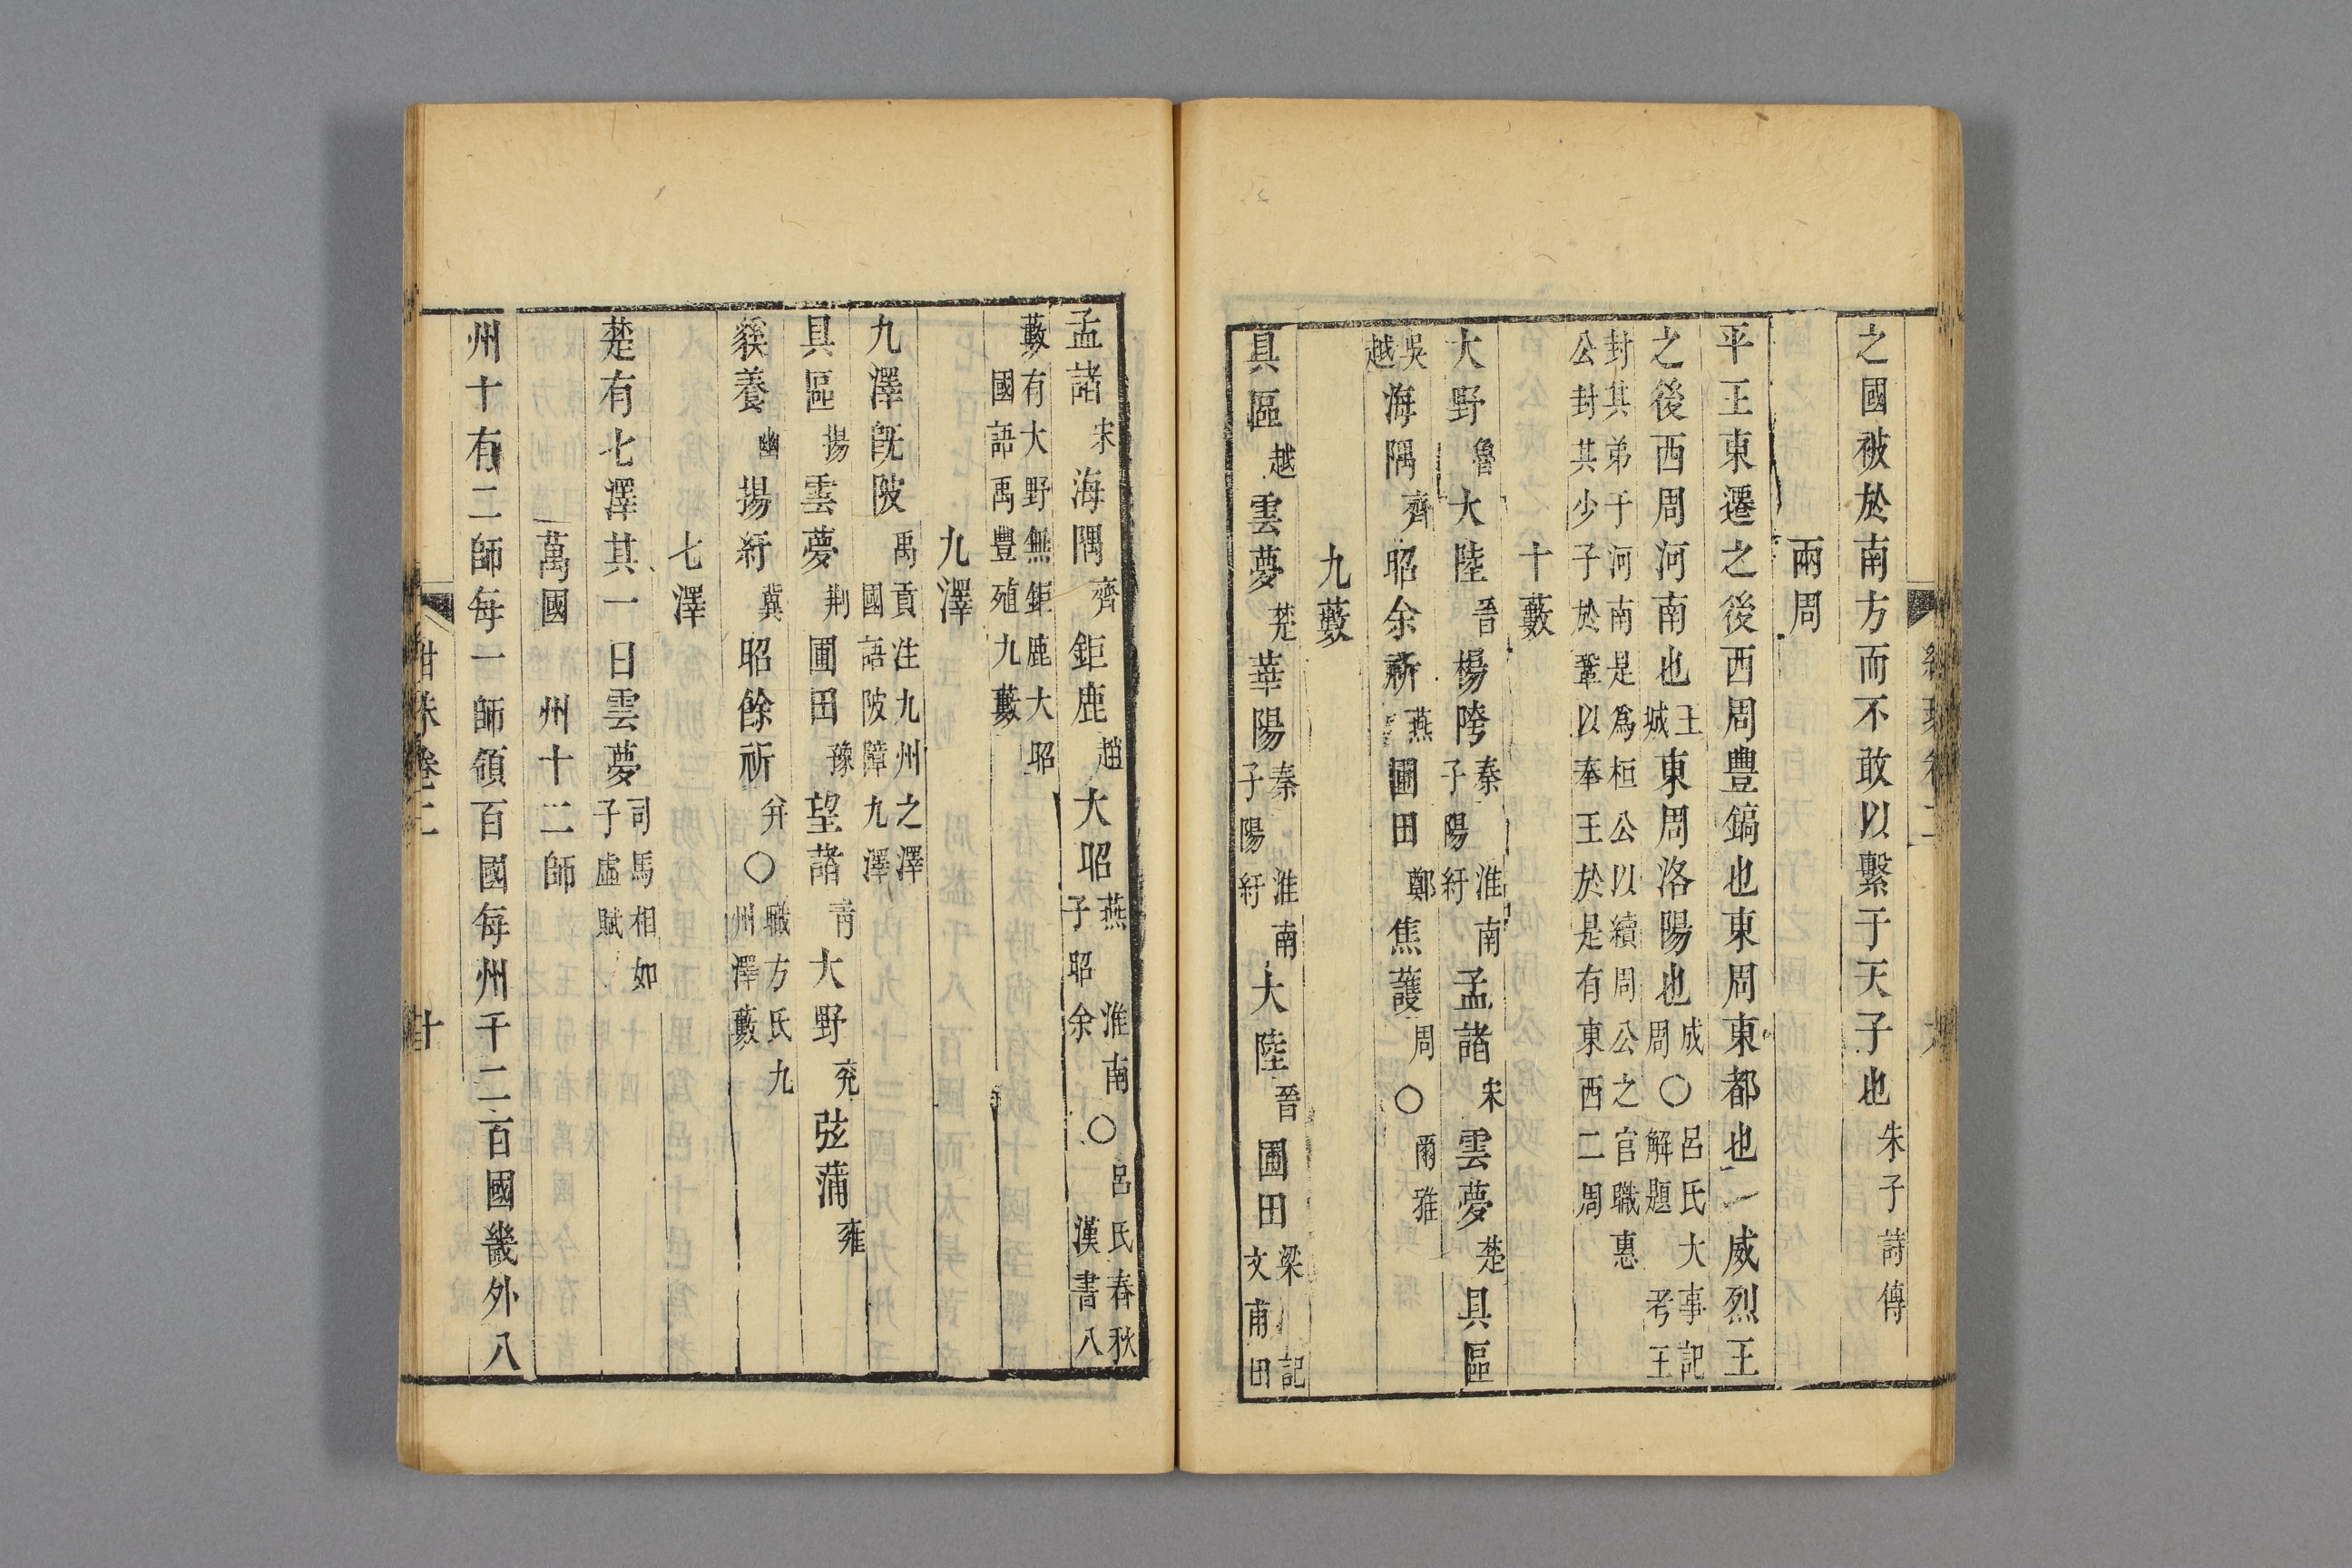 之國被於南方而不敢以繫于天子也朱子詩傳
兩周
平王東遷之後西周豐鎬也東周東都也威烈王
之後西周河南也王城東周洛陽也成周〇呂氏大事記解題考王
封其弟于河南是為桓公以續周公之官職惠
公封其少子於鞏以奉王於是有東西二周
十藪
大野魯大陸晉楊陓秦淮南子陽紆孟諸宋雲夢楚具區
吳越海隅齊昭余祁燕圃田鄭焦護周〇爾雅
九藪
具區越雲夢楚華陽秦淮南子陽紆大陸晉圃田梁記文甫田
孟諸宋海隅齊鉅鹿趙大昭燕淮南子昭余〇呂氏春秋漢書八
藪有大野無鉅鹿大昭
國語禹豐殖九藪
九澤
九澤旣陂禹貢注九州之澤國語陂障九澤
具區揚雲夢荆圃田豫望諸靑大野兗弦蒲雍
貕養幽揚紆冀昭餘祈并〇職方氏九州澤藪
七澤
楚有七澤其一曰雲夢司馬相如子虛賦
萬國 州十二師
州十有二師每一師領百國每州千二百國畿外八
卷二